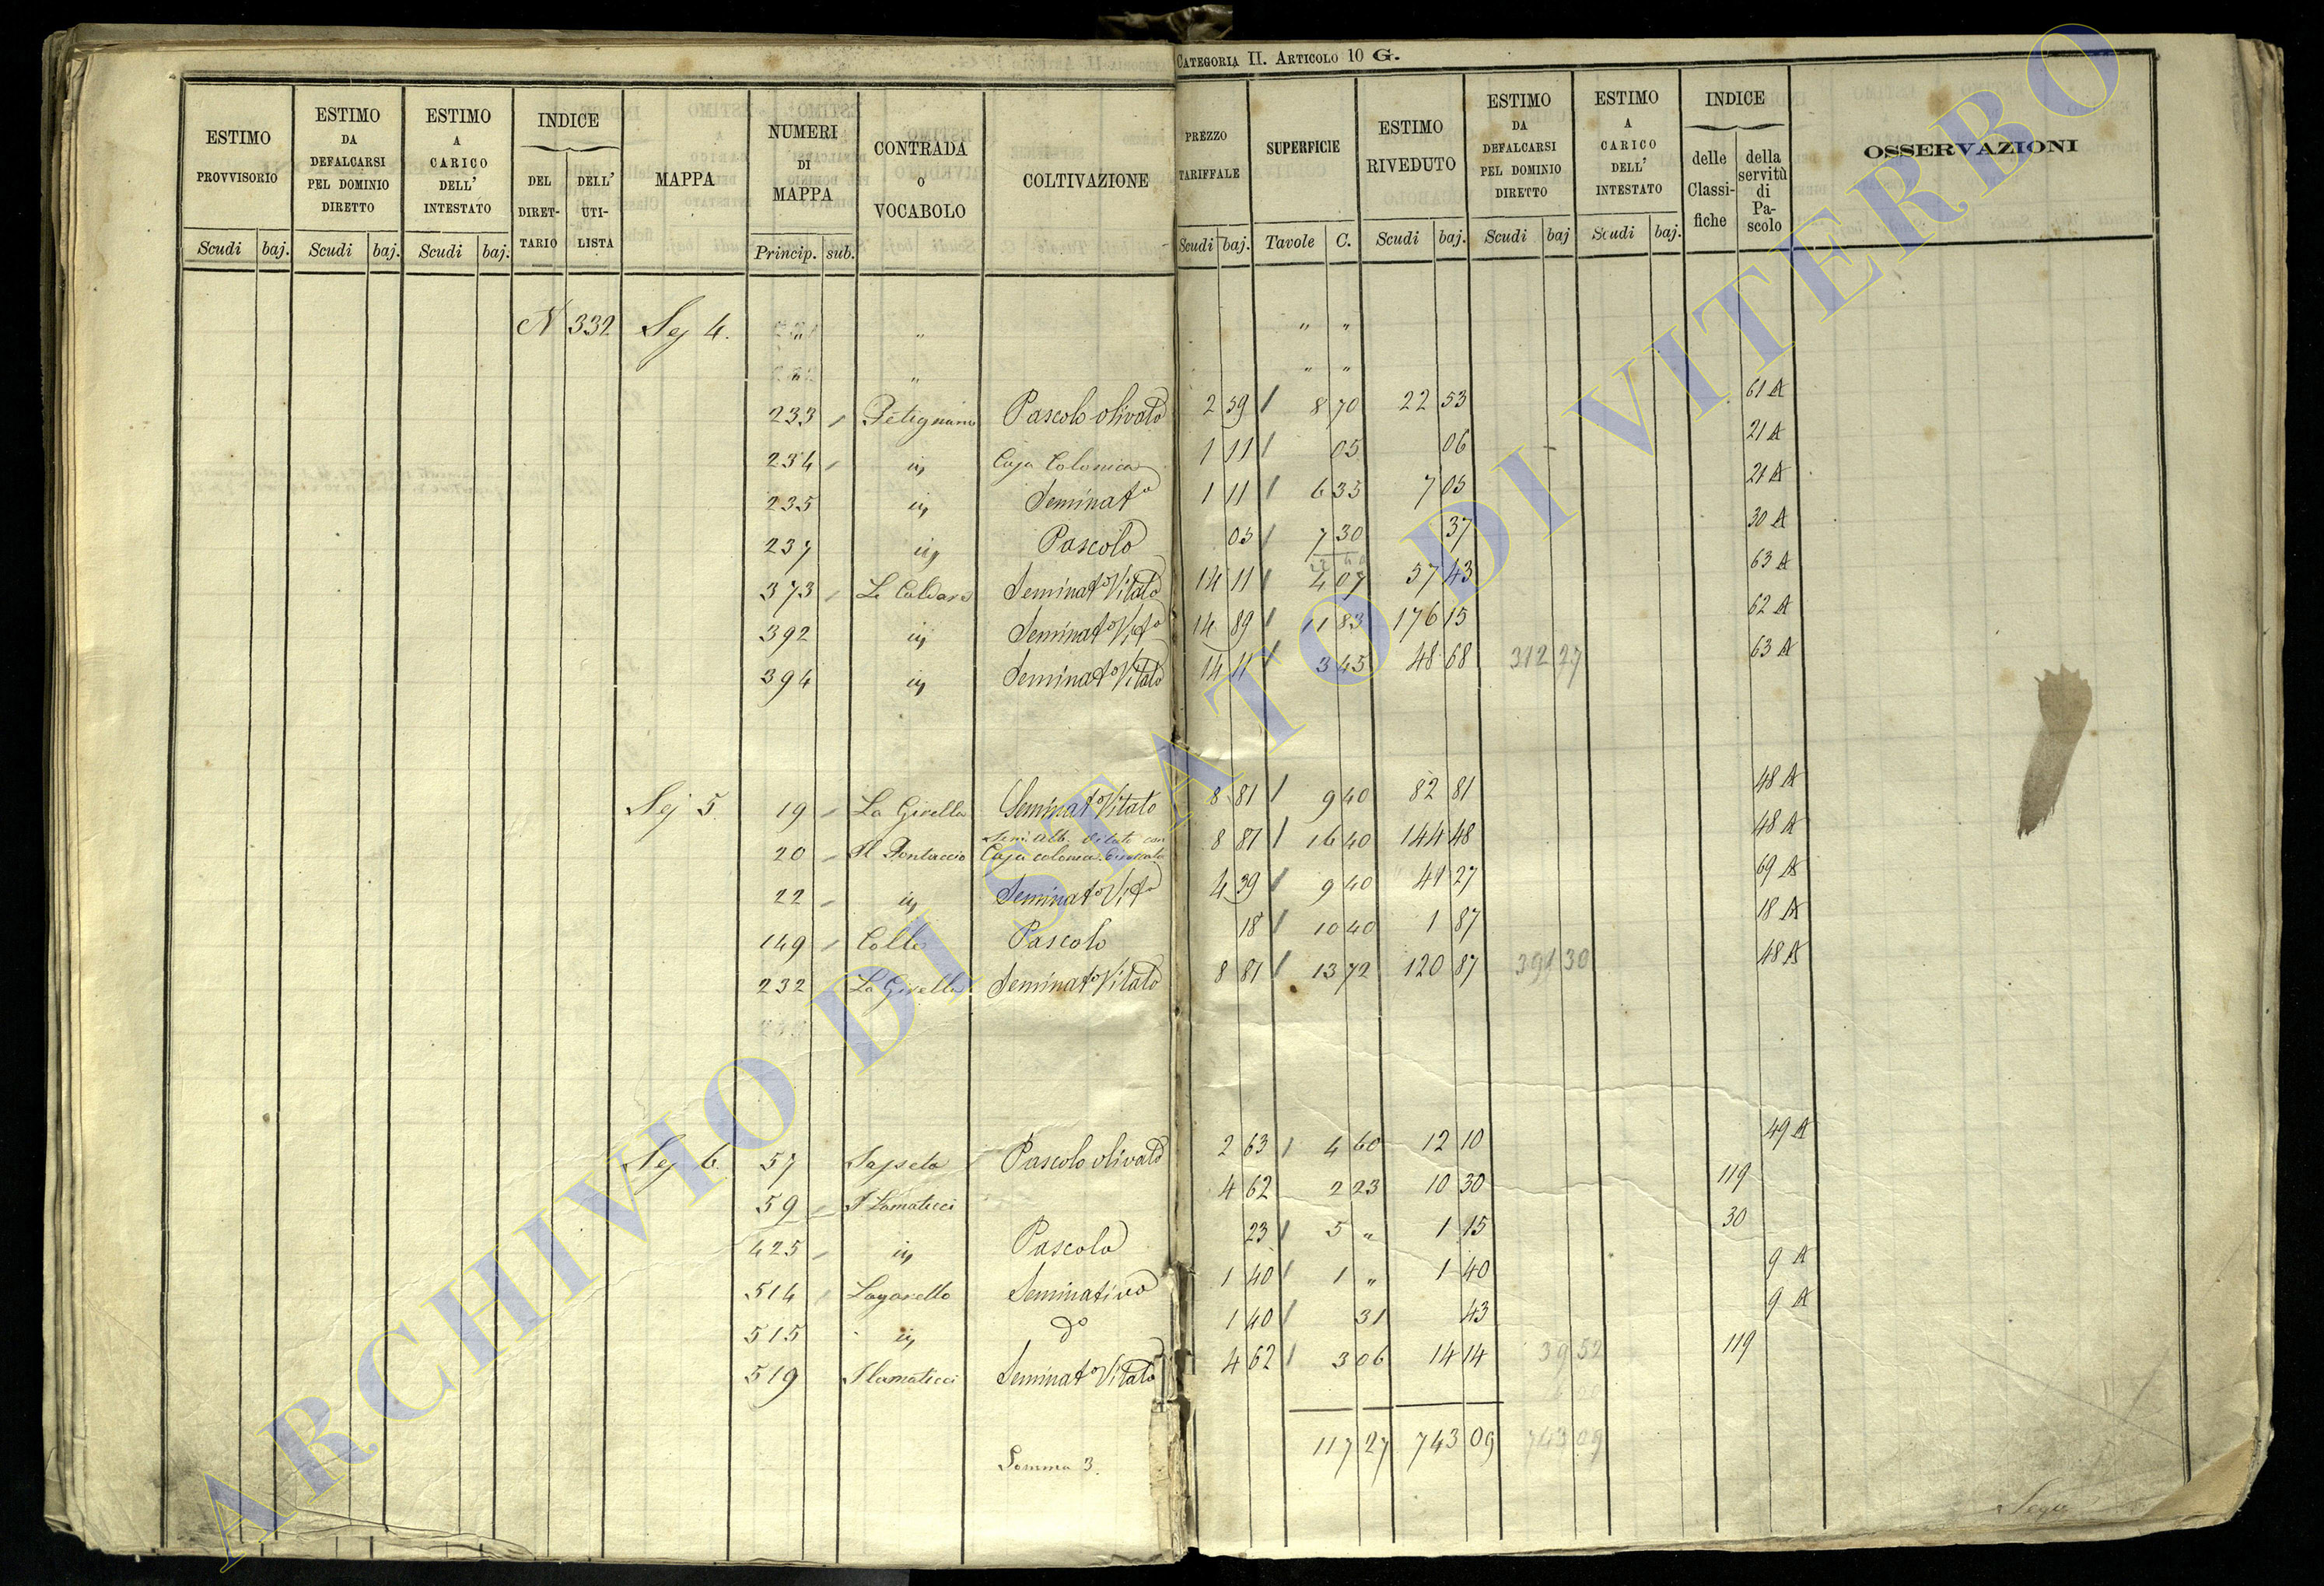 CATEGORIA II. ARTICOLO 10 G.
ESTIMO PROVVISORIO
ESTIMO DA DEFALCARSI PEL DOMINIO DIRETTO
ESTIMO A CARICO DELL' INTESTATO
INDICE
DEL DIRET-TARIO
DELL' UTI-LISTA
MAPPA
NUMERI DI MAPPA
CONTRADA O VOCABOLO
COLTIVAZIONE
PREZZO TARIFFALE
SUPERFICIE
ESTIMO RIVEDUTO
ESTIMO DA DEFALCARSI PEL DOMINIO DIRETTO
ESTIMO A CARICO DELL' INTESTATO
INDICE
delle Classi-fiche
della servitù di Pa-scolo
OSSERVAZIONI
Scudi baj. Scudi baj. Scudi baj. Princip. sub. Scudi baj. Tavole C. Scudi baj. Scudi baj Scudi baj.
N 332 Sej 4. " " " "
" " " "
233 Petignano Pascolo olivato 2 59 8 70 22 53 61 A
234 iij Casa Colonica 1 11 05 06 21 A
235 iij Seminato 1 11 6 35 7 05 21 A
237 iij Pascolo 05 7 30 37 30 A
373 Le Caldare Seminato Vitato 14 11 4 07 57 43 63 A
392 iij Seminato Vito 14 89 11 83 176 15 62 A
394 iij Seminato Vitato 14 11 3 45 48 68 312 27 63 A
Sej 5. 19 La Girella Seminato Vitato 8 81 9 40 82 81 48 A
20 Il Pontaccio Sem. Alb. Vitato con Casa colonica 8 81 16 40 144 48 48 A
22 iij Seminato Vito 4 39 9 40 41 27 69 A
149 Colle Pascolo 18 10 40 1 87 18 A
232 La Girella Seminato Vitato 8 81 13 72 120 87 391 30 48 A
Sej 6. 57 Sapseta Pascolo olivato 2 63 4 60 12 10 49 A
59 I Lamaticci 4 62 2 23 10 30 119
425 iij Pascolo 23 5 " 1 15 30
514 Lagarello Seminativo 1 40 1 " 1 40 9 A
515 iij do 1 40 31 43 9 A
519 I Lamaticci Seminato Vitato 4 62 3 06 14 14 39 52 119
117 27 743 09 743 09
Somma 3.
Segue
ARCHIVIO DI STATO DI VITERBO